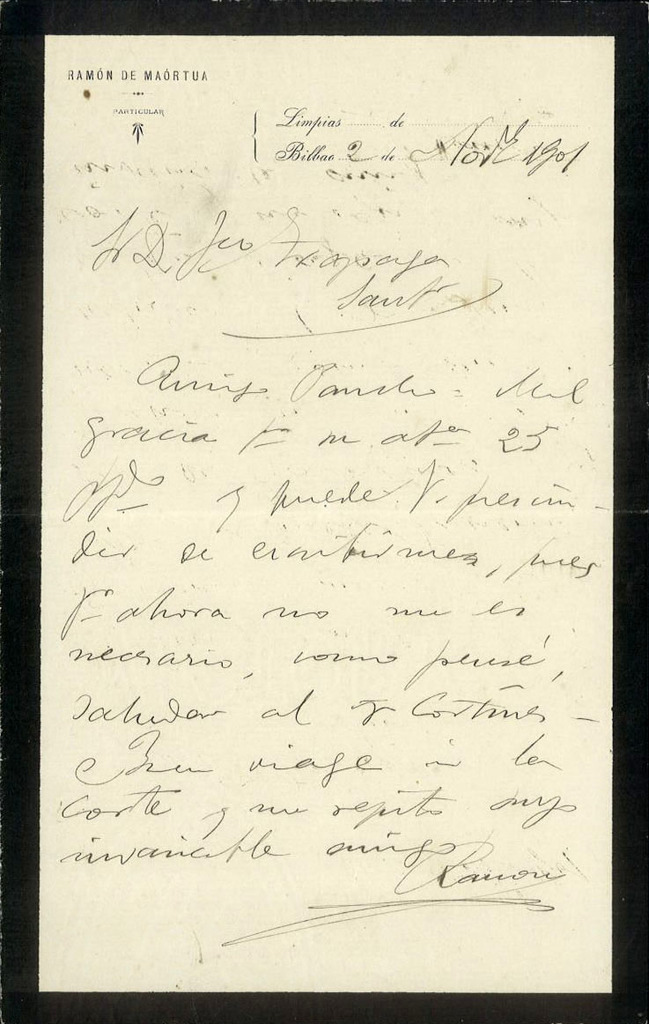 RAMÓN DE MAÓRTUA
PARTICULAR
Limpias de
Bilbao 2 de Novre 1901
Sr D. Fco
Sant
Amigo Pancho = Mil
gracias pr su atta 25
ppdo y puede V. prescin-
dir de escribirme, pues
pr ahora no me es
necesario, como pensé,
saludar al Sr. Cortines -
Buen viage a la
Corte y me repito suyo
invariable amigo
Ramon